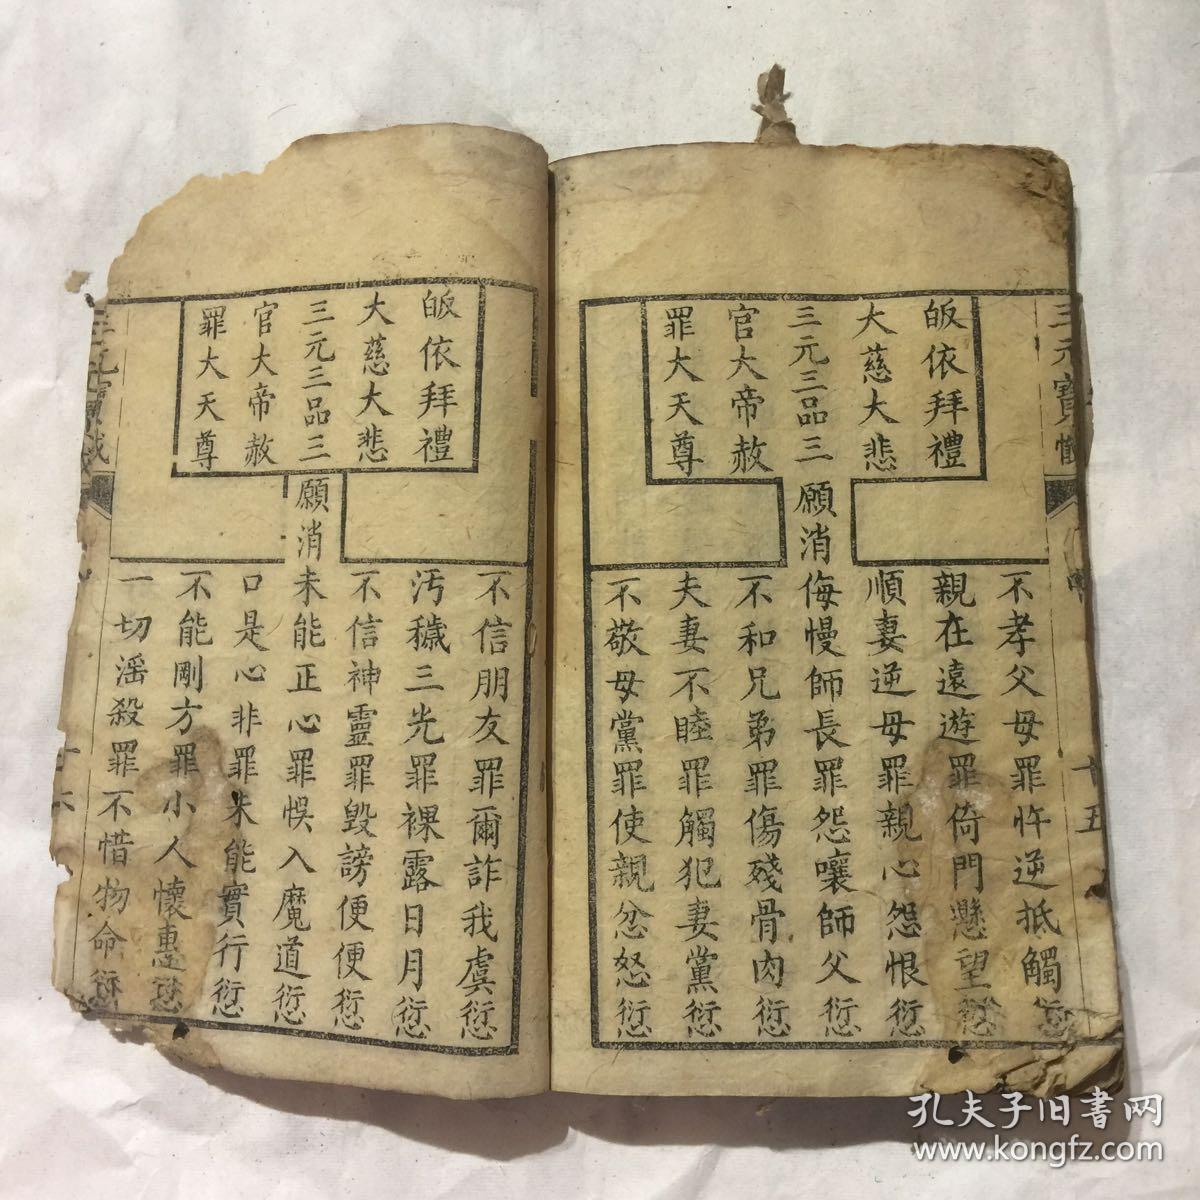 三元寶懺
十五
皈依拜禮
大慈大悲
三元三品三
官大帝赦
罪大天尊
願消
不孝父母罪忤逆抵觸愆
親在遠遊罪倚門懸望愆
順妻逆母罪親心怨恨愆
侮慢師長罪怨嚷師父愆
不和兄弟罪傷殘骨肉愆
夫妻不睦罪觸犯妻黨愆
不敬母黨罪使親忿怒愆
皈依拜禮
大慈大悲
三元三品三
官大帝赦
罪大天尊
願消
不信朋友罪爾詐我虞愆
汚穢三光罪裸露日月愆
不信神靈罪毀謗便便愆
未能正心罪悞入魔道愆
口是心非罪未能實行愆
不能剛方罪小人懷惠愆
一切滛殺罪不惜物命愆
三元寶懺
十六
孔夫子旧書网
www.kongfz.com